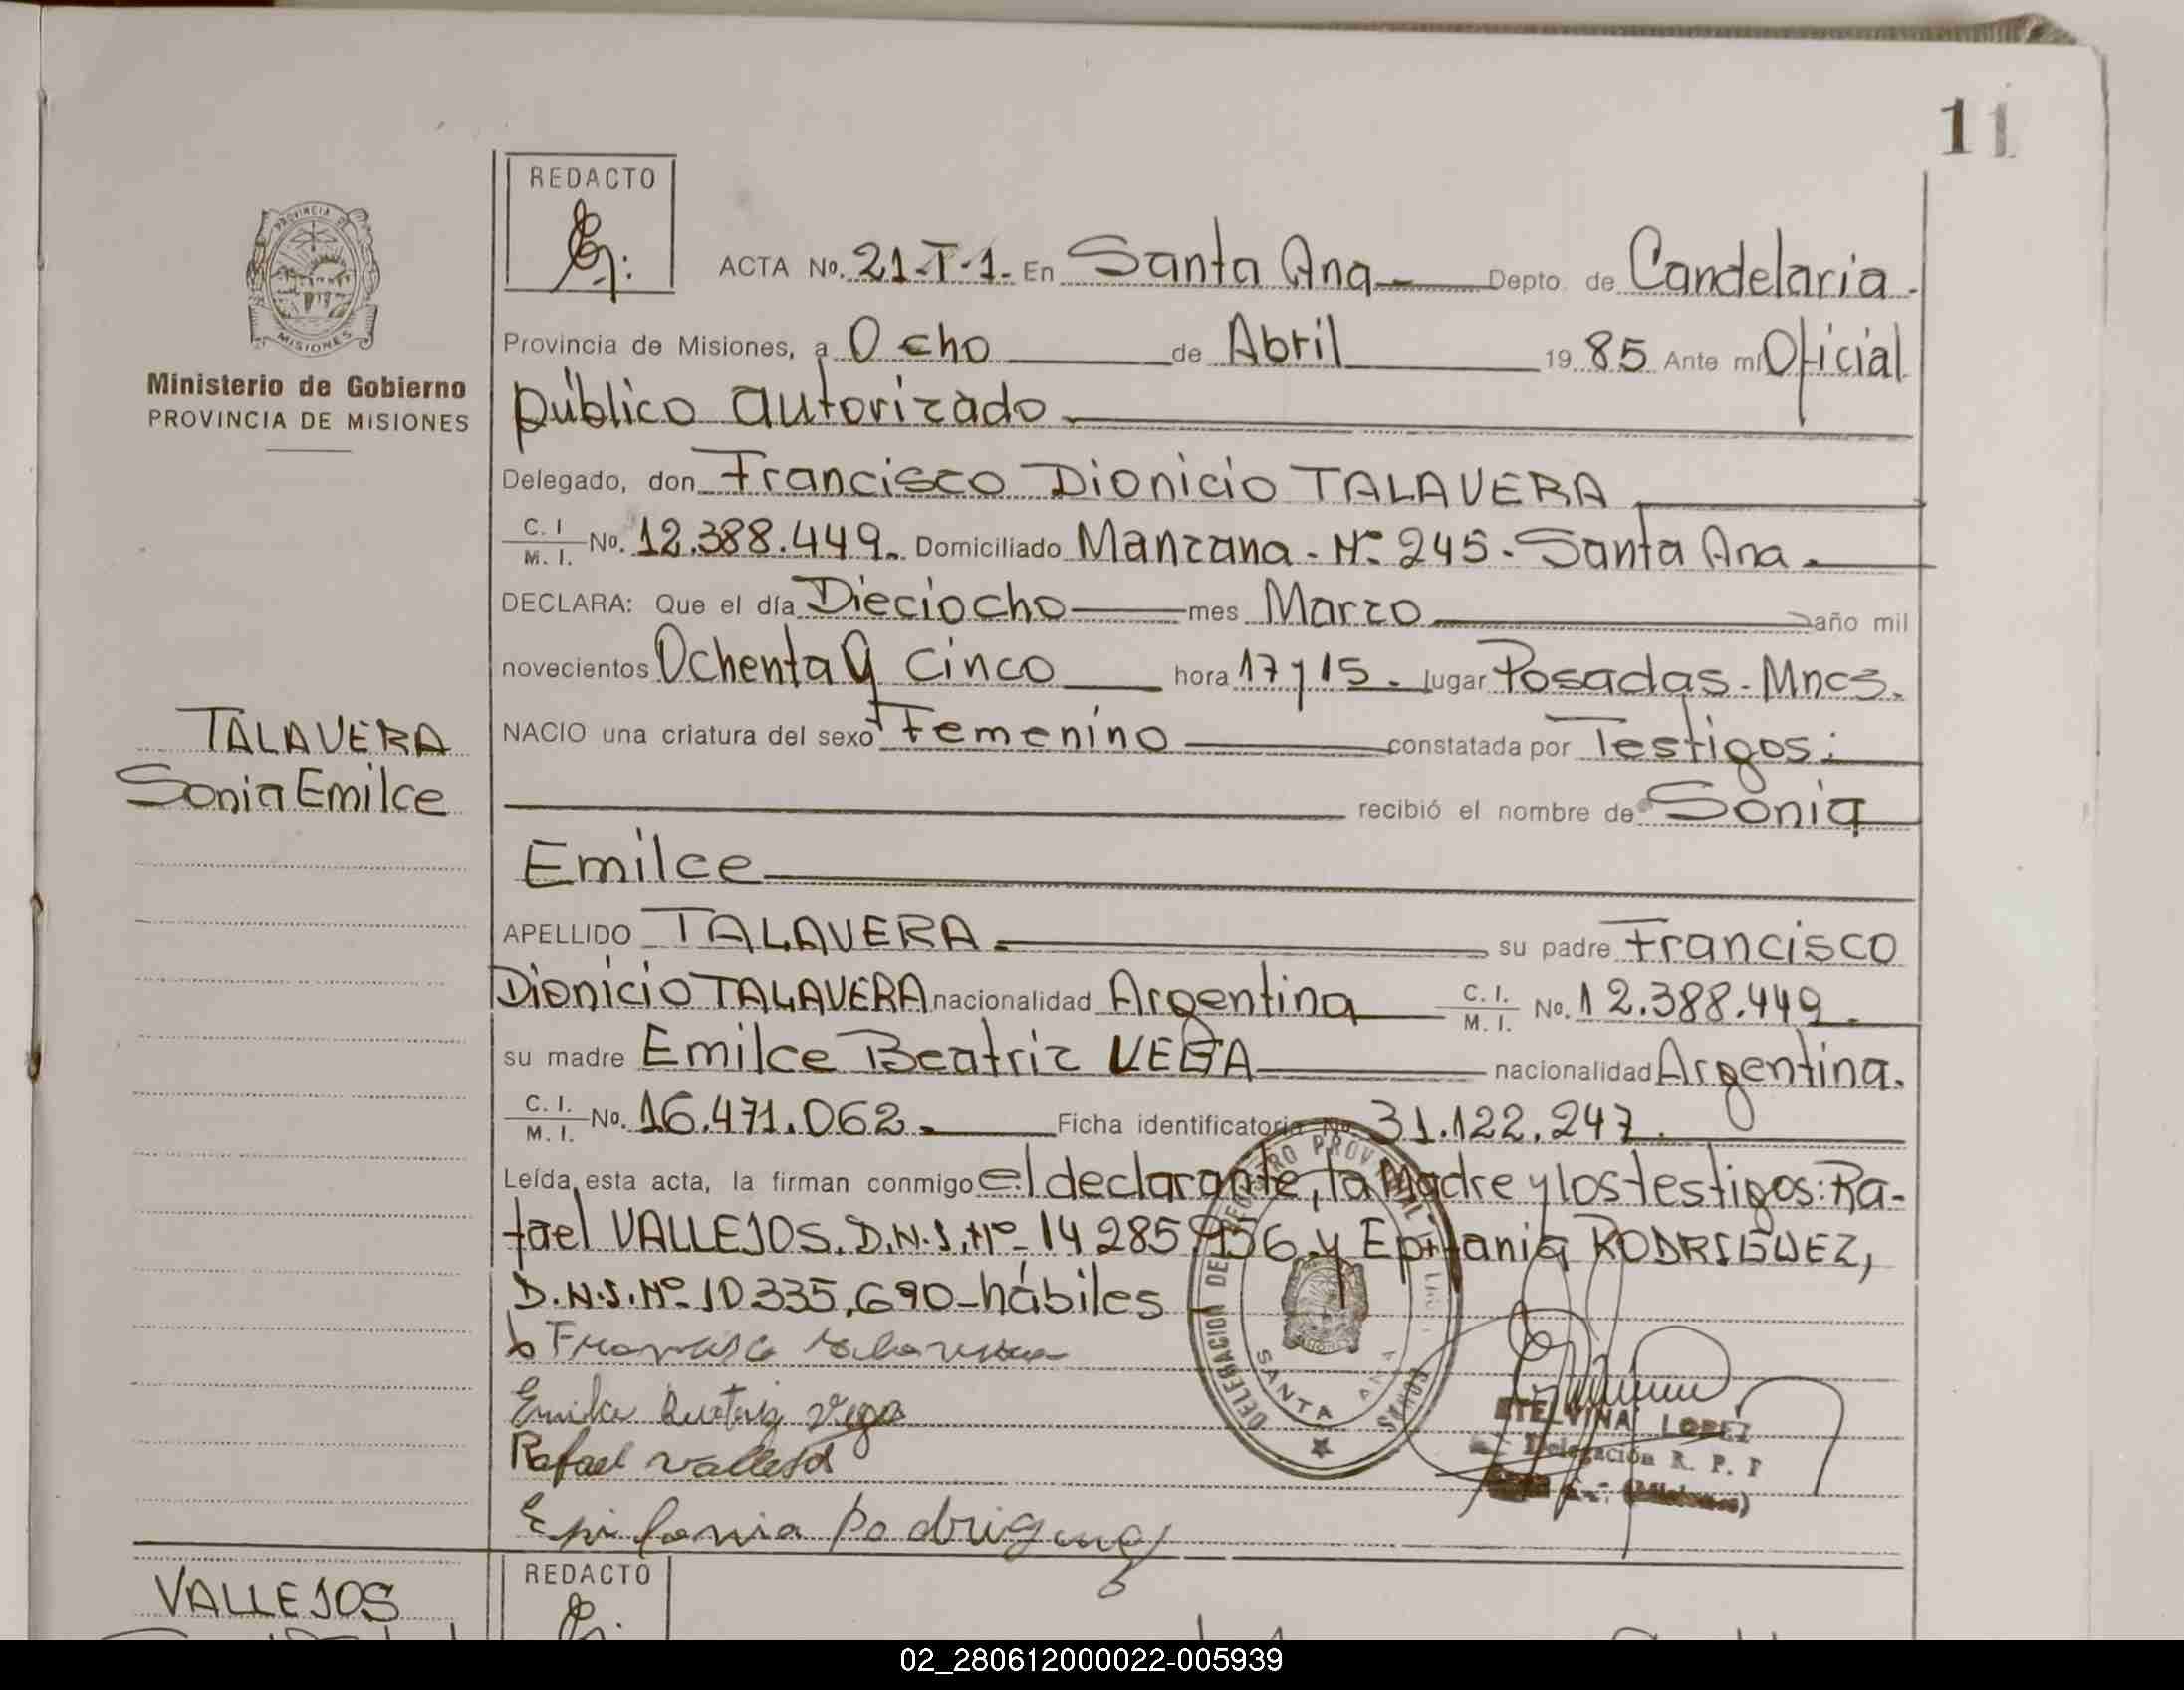 11
REDACTO
PROVINCIA DE
MISIONES
Ministerio de Gobierno
PROVINCIA DE MISIONES
ACTA No. 21-T-1. En Santa Ana Depto. de Candelaria.
Provincia de Misiones, a Ocho de Abril 19 85 Ante mí Oficial
público autorizado
Delegado, don Francisco Dionicio TALAVERA
C. I. M. I. No. 12.388.449. Domiciliado Manzana - Nº 245 - Santa Ana.
DECLARA: Que el día Dieciocho mes Marzo año mil
novecientos Ochenta y cinco hora 17 y 15. lugar Posadas - Mnes.
TALAVERA
Sonia Emilce
NACIO una criatura del sexo Femenino constatada por Testigos:
recibió el nombre de Sonia
Emilce
APELLIDO TALAVERA su padre Francisco
Dionicio TALAVERA nacionalidad Argentina C. I. M. I. No. 12.388.449.
su madre Emilce Beatriz VEGA nacionalidad Argentina.
C. I. M. I. No. 16.471.062. Ficha identificatoria No. 31.122.247.
Leída esta acta, la firman conmigo el declarante, la Madre y los testigos: Ra-
fael VALLEJOS. D.N.I. Nº 14 285.956 y Epifania RODRIGUEZ,
D.N.I. Nº 10 335.690 - hábiles
Francisco Talavera
Emilce Beatriz Vega
Rafael Vallejos
Epifania Rodriguez
SANTA ANA
ETELVINA LOPEZ
Delegación R. P. P
(Misiones)
VALLEJOS
REDACTO
02_280612000022-005939